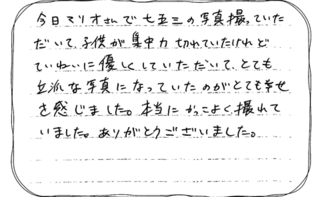 今日マリオさんで七五三の写真撮っていた
だいて、子供が集中力切れていたけれど
ていねいに優しくしていただいて、とても
立派な写真になっていたのがとても幸せ
を感じました。本当にかっこよく撮れて
いました。ありがとうございました。